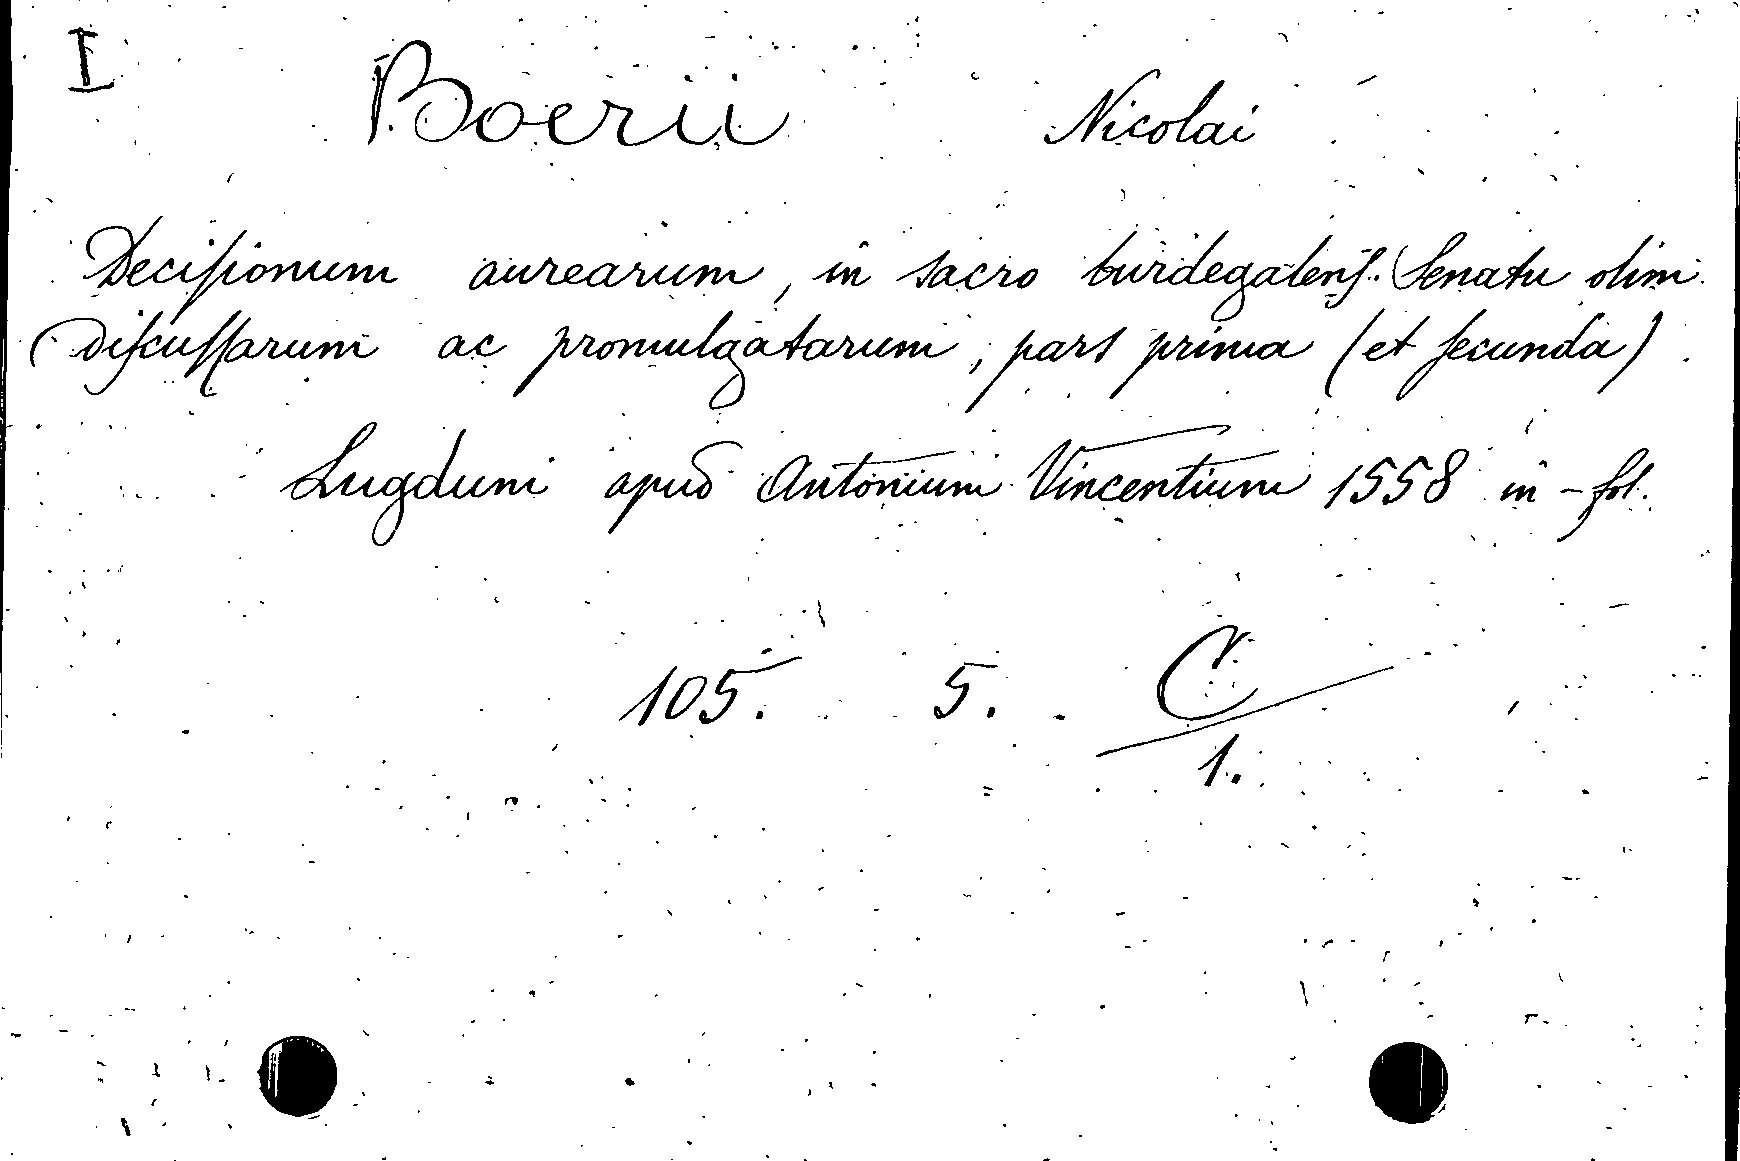 I
Boerii Nicolai
Deciſionum aurearum, in sacro burdegalenſ. Senatu olim
diſcuſſarum ac promulgatarum, pars prima (et ſecunda)
Lugduni apud Antonium Vincentium 1558 in-fol.
105. 5. C
1.